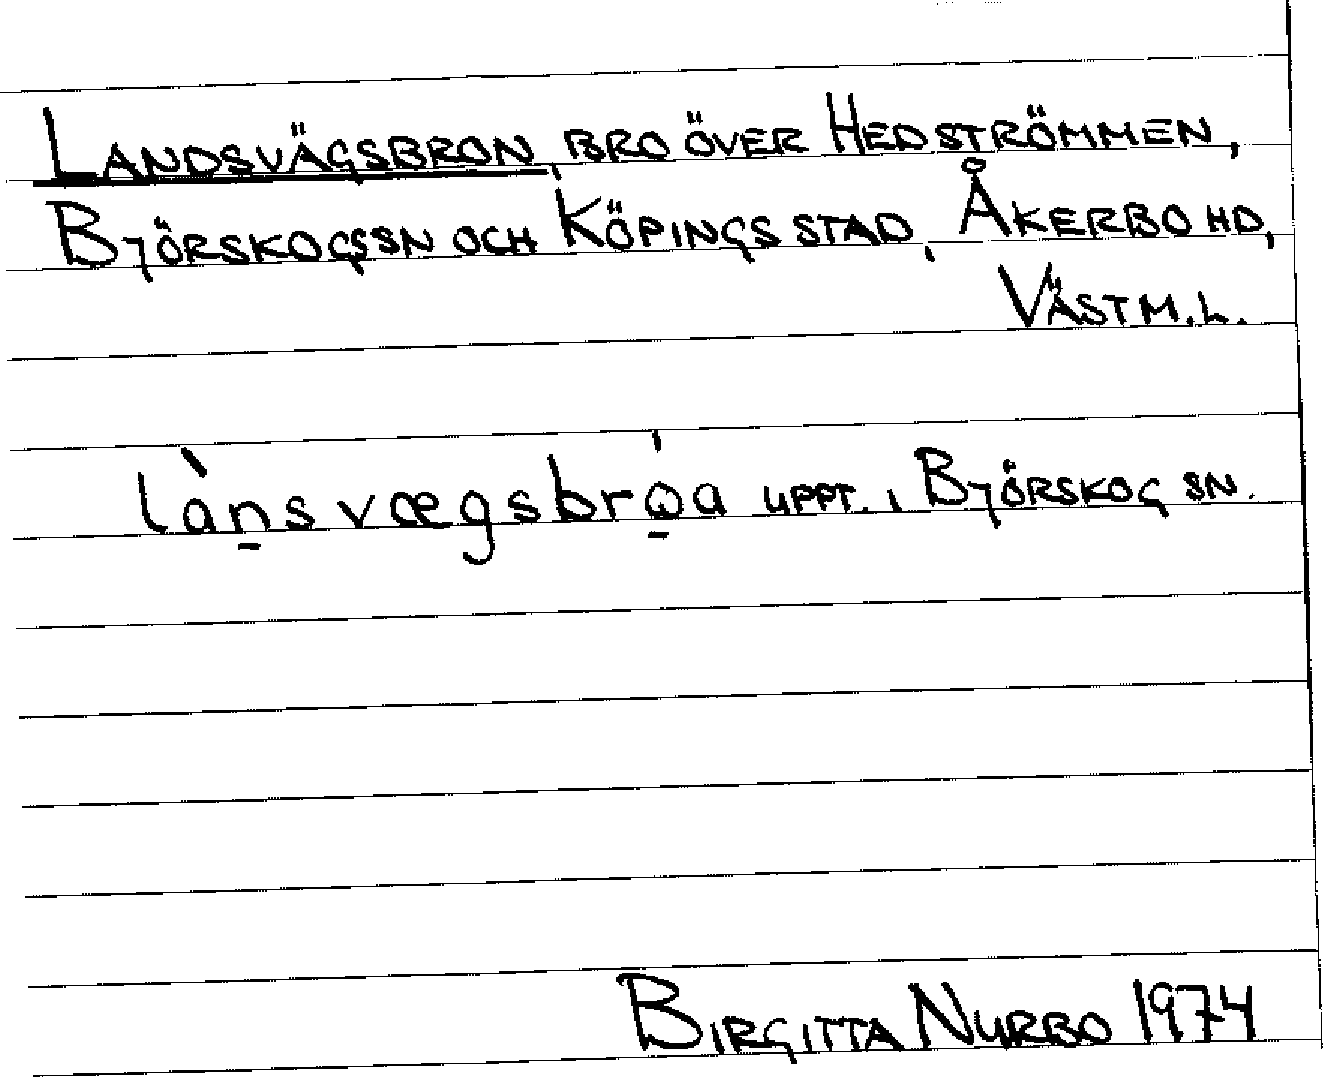 LANDSVÄGSBRON, BRO ÖVER HEDSTRÖMMEN,
BJÖRSKOGS SN OCH KÖPINGS STAD, ÅKERBO HD,
VÄSTM. L.
là̱nsvægsbrò̱a UPPT. I BJÖRSKOG SN.
BIRGITTA NURBO 1974